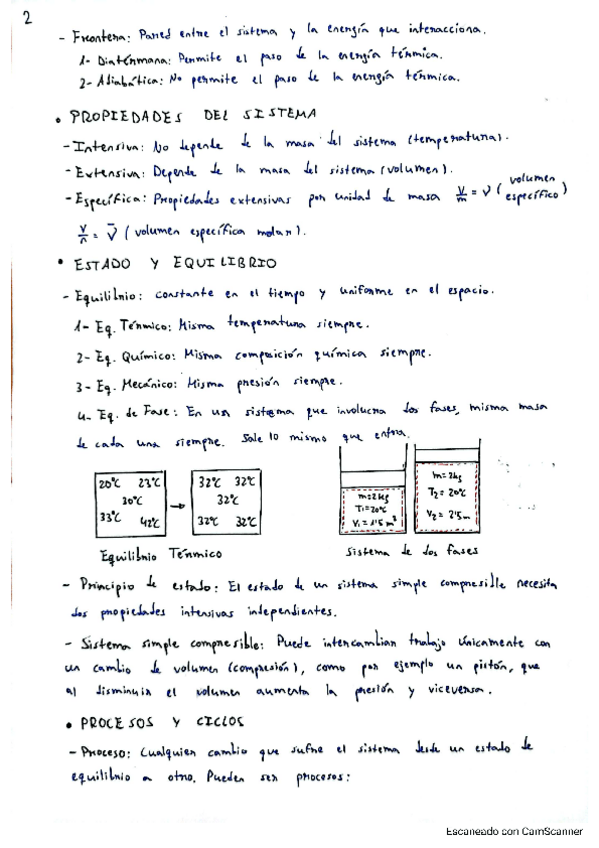 2
- Frontera: Pared entre el sistema y la energía que interacciona.
1- Diatérmana: Permite el paso de la energía térmica.
2- Adiabática: No permite el paso de la energía térmica.
• PROPIEDADES DEL SISTEMA
- Intensiva: No depende de la masa del sistema (temperatura).
- Extensiva: Depende de la masa del sistema (volumen).
- Específica: Propiedades extensivas por unidad de masa V/m = v (volumen específico)
V/n = v̄ (volumen específica molar).
• ESTADO Y EQUILIBRIO
- Equilibrio: constante en el tiempo y uniforme en el espacio.
1- Eq. Térmico: Misma temperatura siempre.
2- Eq. Químico: Misma composición química siempre.
3- Eq. Mecánico: Misma presión siempre.
4- Eq. de Fase: En un sistema que involucra dos fases, misma masa
de cada una siempre. Sale lo mismo que entra.
20°C 23°C
30°C
33°C 42°C
32°C 32°C
32°C
32°C 32°C
m=2kg
T1=20°C
V1=1'5 m³
m=2kg
T2=20°C
V2=2'5m
Equilibrio Térmico
Sistema de dos fases
- Principio de estado: El estado de un sistema simple compresible necesita
dos propiedades intensivas independientes.
- Sistema simple compresible: Puede intercambiar trabajo únicamente con
un cambio de volumen (compresión), como por ejemplo un pistón, que
al disminuir el volumen aumenta la presión y viceversa.
• PROCESOS Y CICLOS
- Proceso: Cualquier cambio que sufre el sistema desde un estado de
equilibrio a otro. Pueden ser procesos:
Escaneado con CamScanner